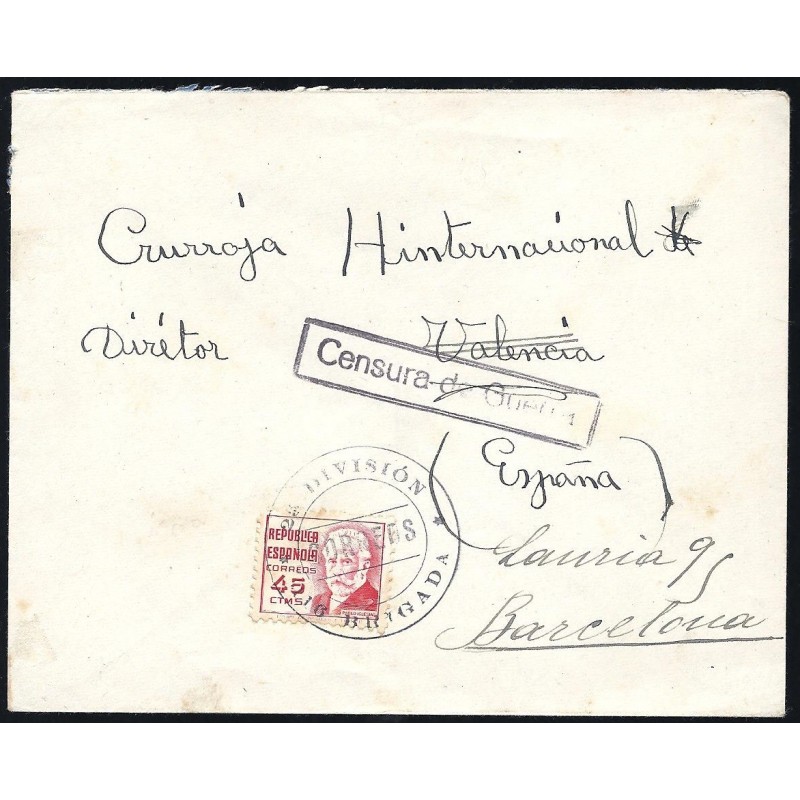 Crurroja Hinternacional
Dirétor Valencia
Censura de Guerra
(España)
Lauria 95
Barcelona
DIVISIÓN
CORREOS
BRIGADA
REPUBLICA
ESPAÑOLA
CORREOS
45
CTMS